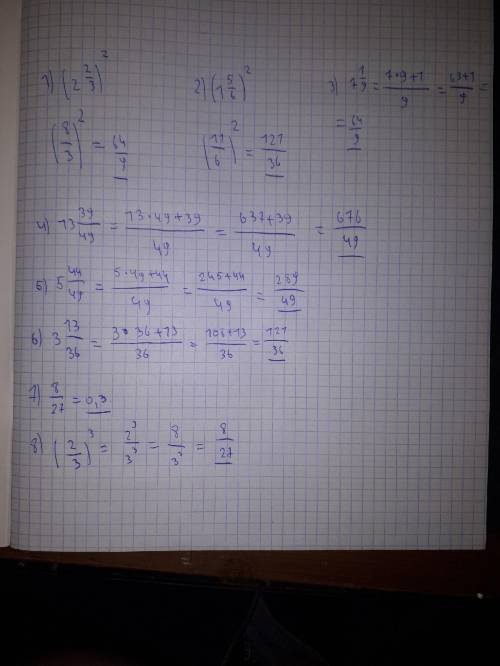 1) (2 2/3)² 2) (1 5/6)² 3) 7 1/9 = 7·9+1/9 = 63+1/9 =
(8/3)² = 64/9 (11/6)² = 121/36 = 64/9
4) 13 39/49 = 13·49+39/49 = 637+39/49 = 676/49
5) 5 44/49 = 5·49+44/49 = 245+44/49 = 289/49
6) 3 13/36 = 3·36+13/36 = 108+13/36 = 121/36
7) 8/27 = 0,3
8) (2/3)³ = 2³/3³ = 8/3³ = 8/27